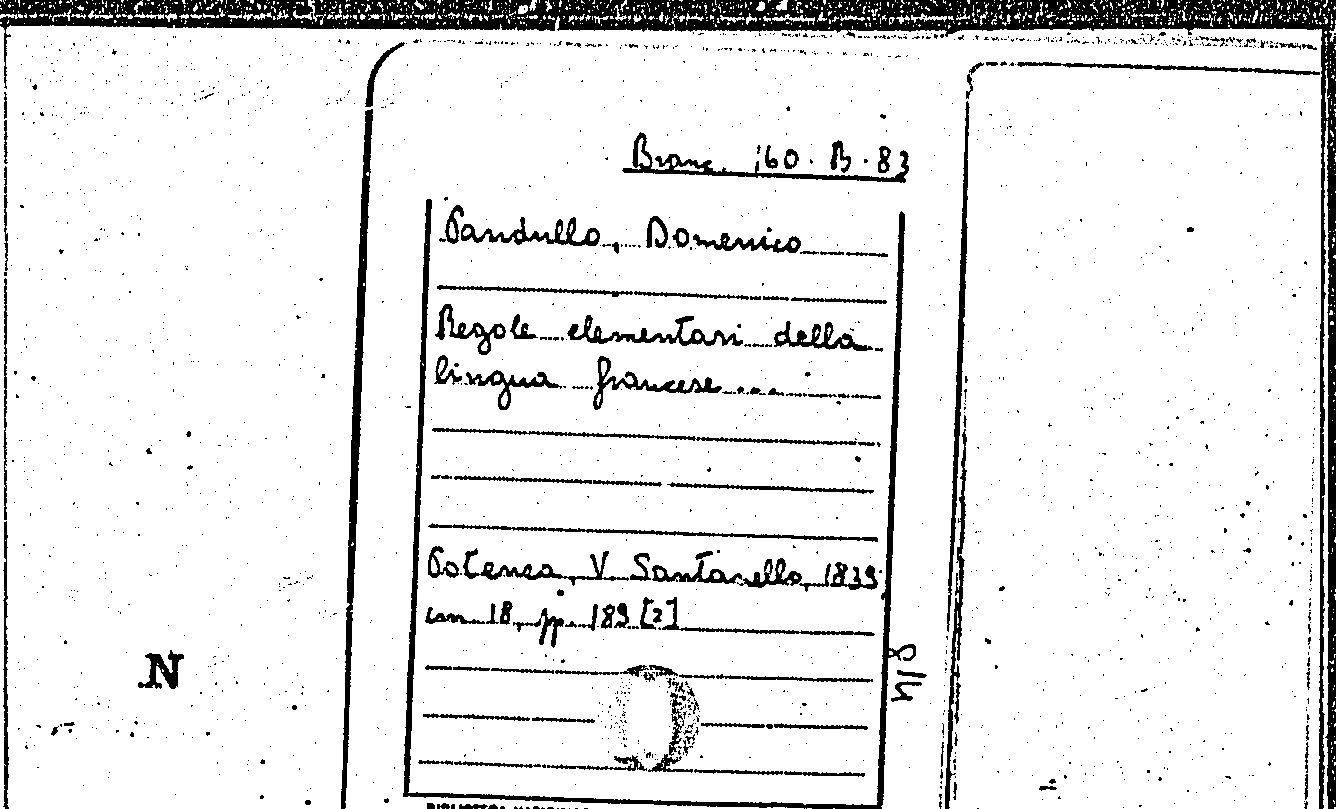 Branc. 160. B. 83
Pandullo, Domenico
Regole elementari della
lingua francese...
Potenza, V. Santanello, 1839
cm. 18, pp. 189 [2]
N